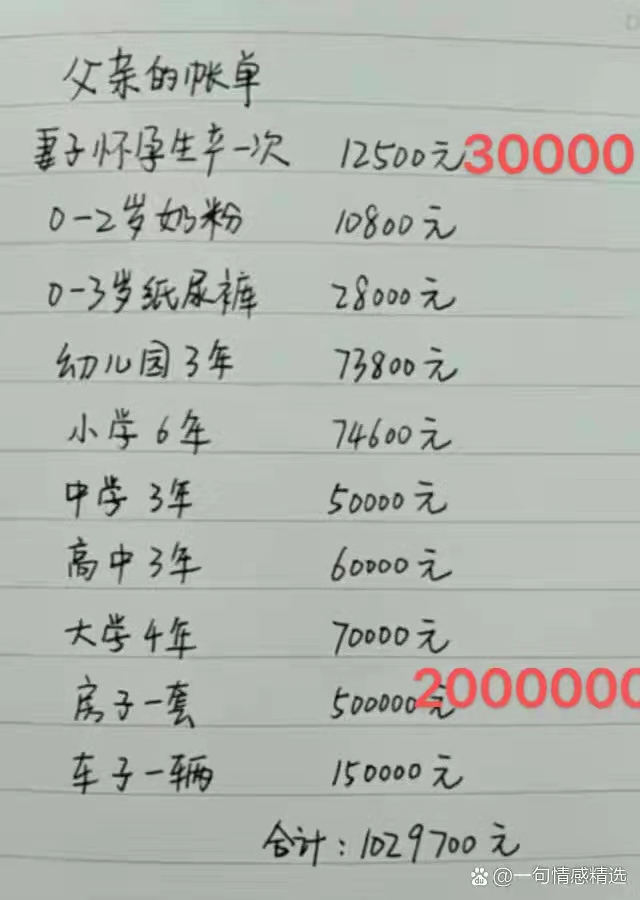 父亲的帐单
妻子怀孕生产一次 12500元 30000
0-2岁奶粉 10800元
0-3岁纸尿裤 28000元
幼儿园3年 73800元
小学6年 74600元
中学3年 50000元
高中3年 60000元
大学4年 70000元
房子一套 500000元 2000000
车子一辆 150000元
合计:1029700元
一句情感精选